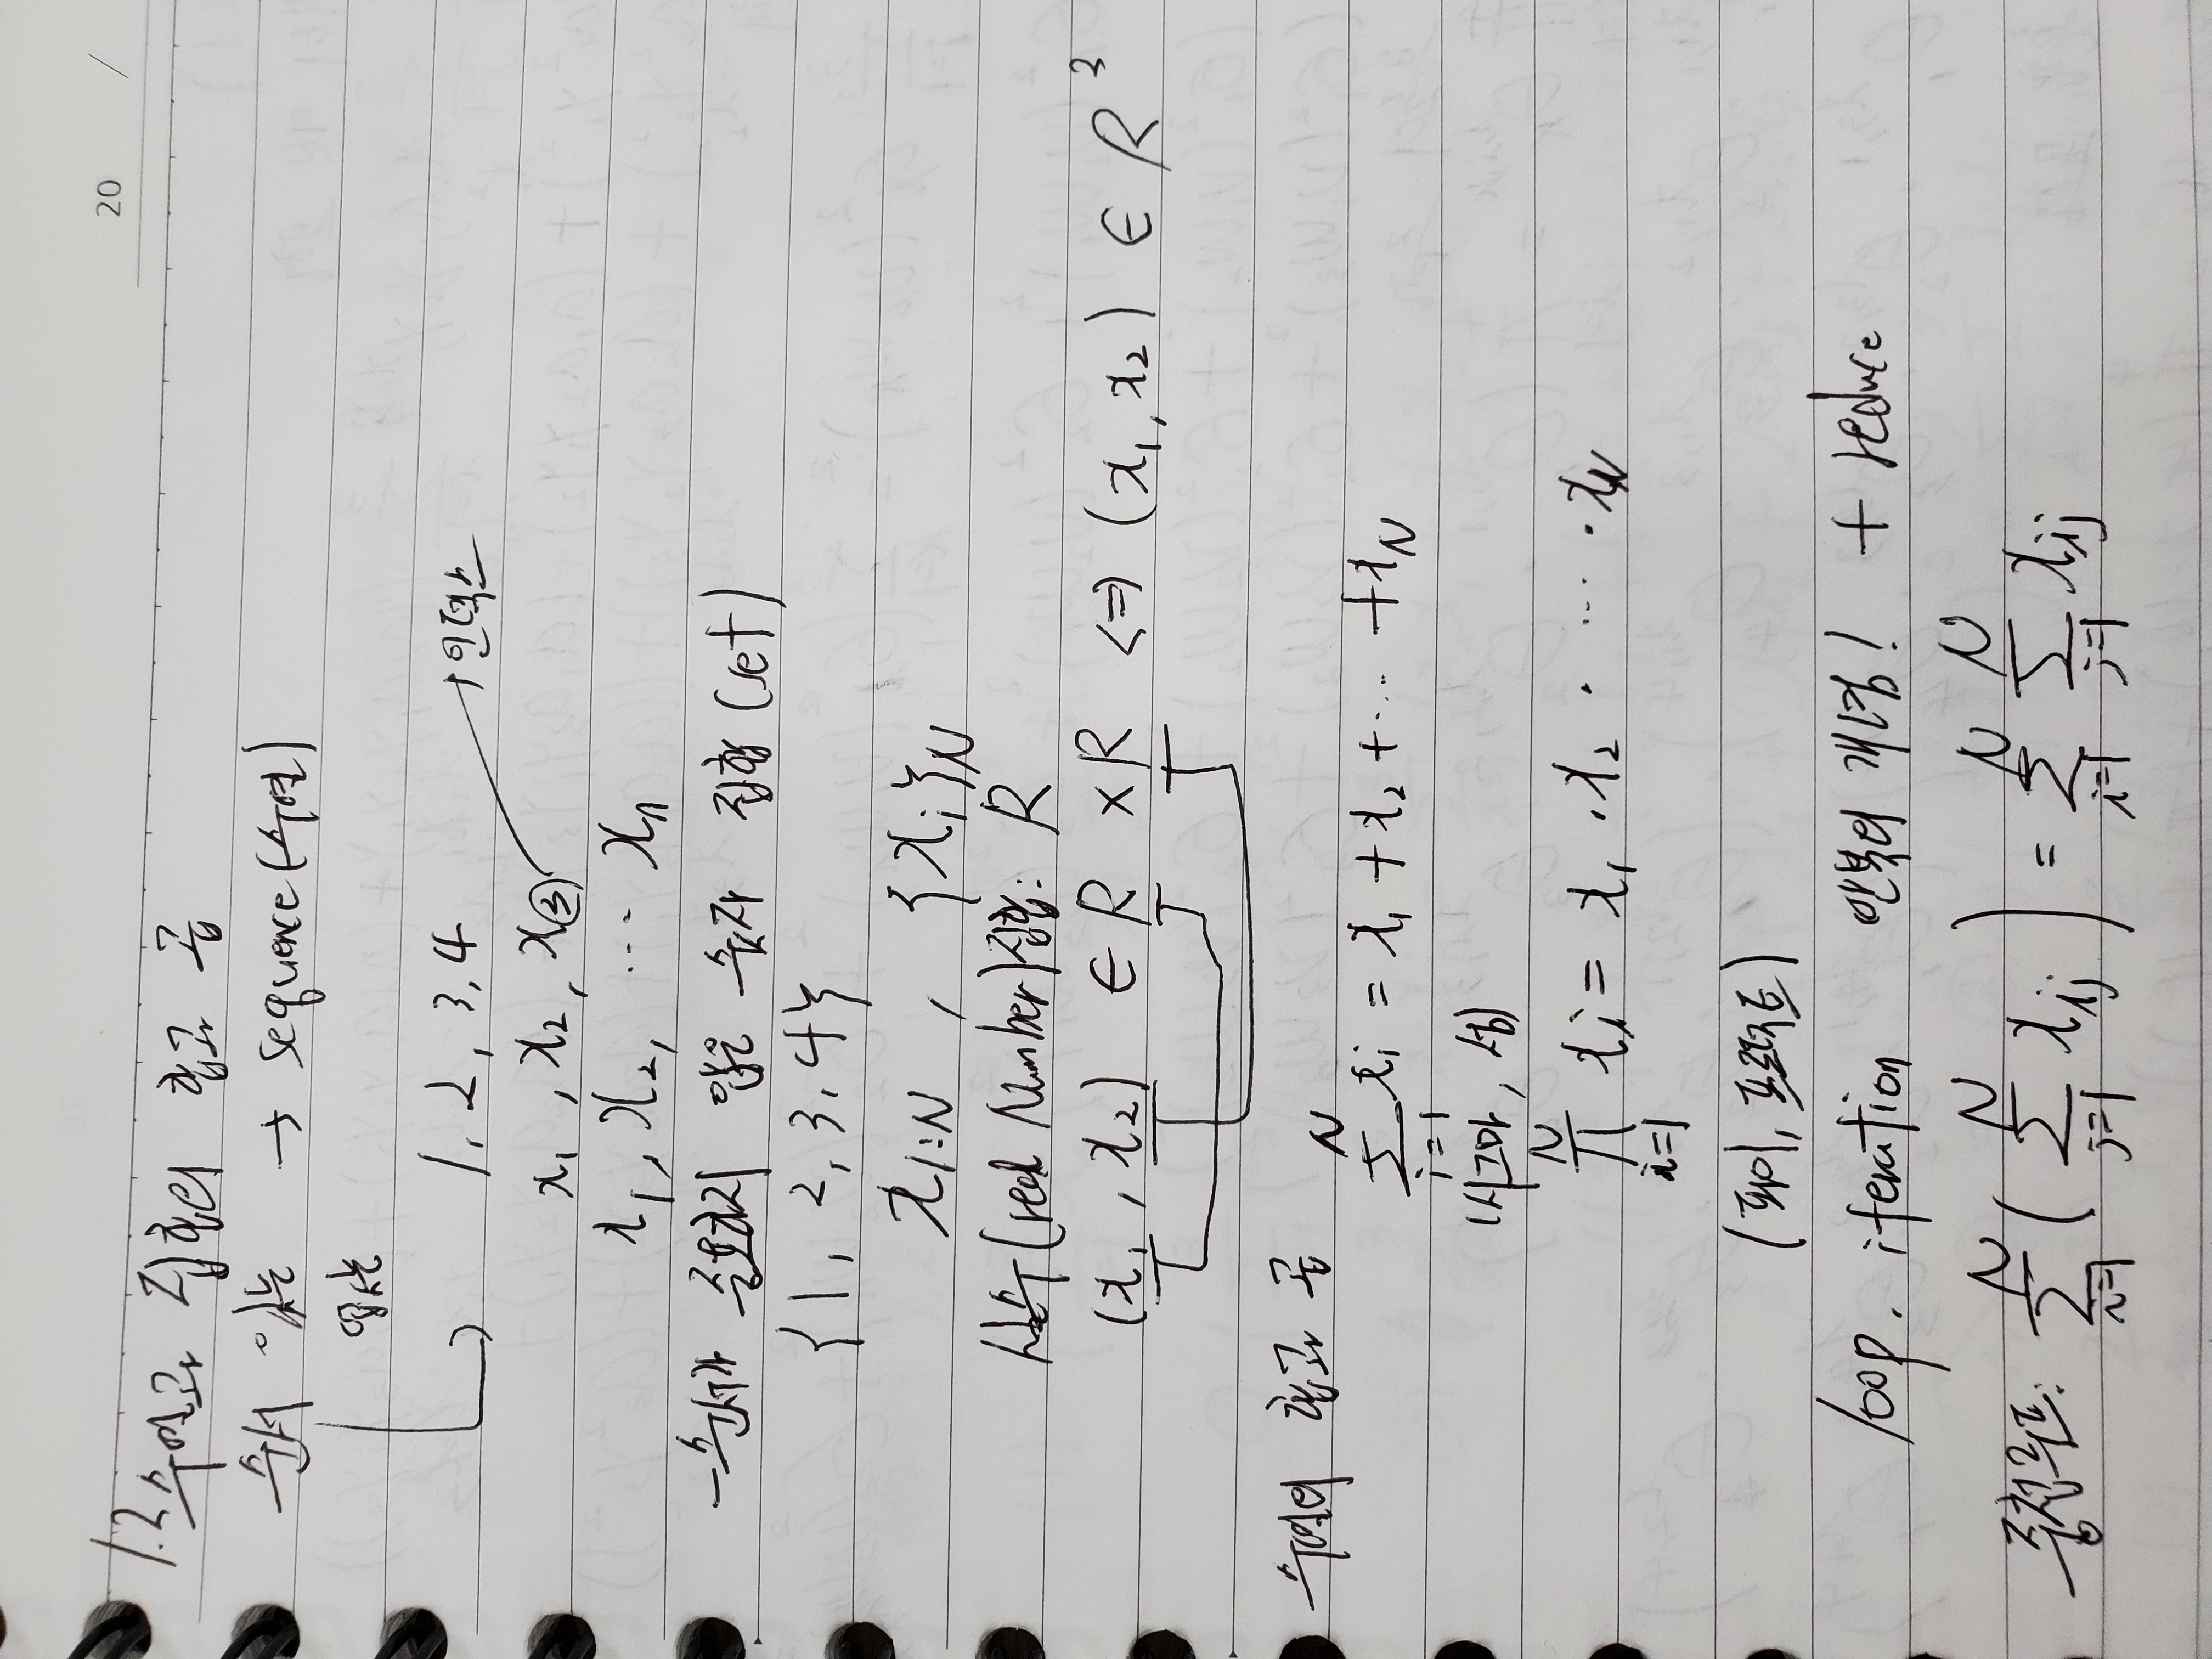 20 /
1.2 수열과 집합의 합과 곱
순서 있는 → sequence (수열)
없는
1, 2, 3, 4 → 인덱스
x₁, x₂, x₃
x₁, x₂, ⋯ xₙ
- 순서가 중요하지 않은 숫자 집합 (set)
{1, 2, 3, 4}
x₁:N , {xᵢ}N
실수 (real Number) 집합: R
(x₁, x₂) ∈ R × R <=> (x₁, x₂) ∈ R³
수열의 합과 곱
N
Σ xᵢ = x₁ + x₂ + ⋯ + xN
i=1
(시그마, 섬)
N
∏ xᵢ = x₁ · x₂ · ⋯ · xN
i=1
(파이, 프로덕트)
loop. iteration 반복의 개념! + reduce
N N N N
중첩루프: Σ ( Σ xij ) = Σ Σ xij
i=1 j=1 i=1 j=1